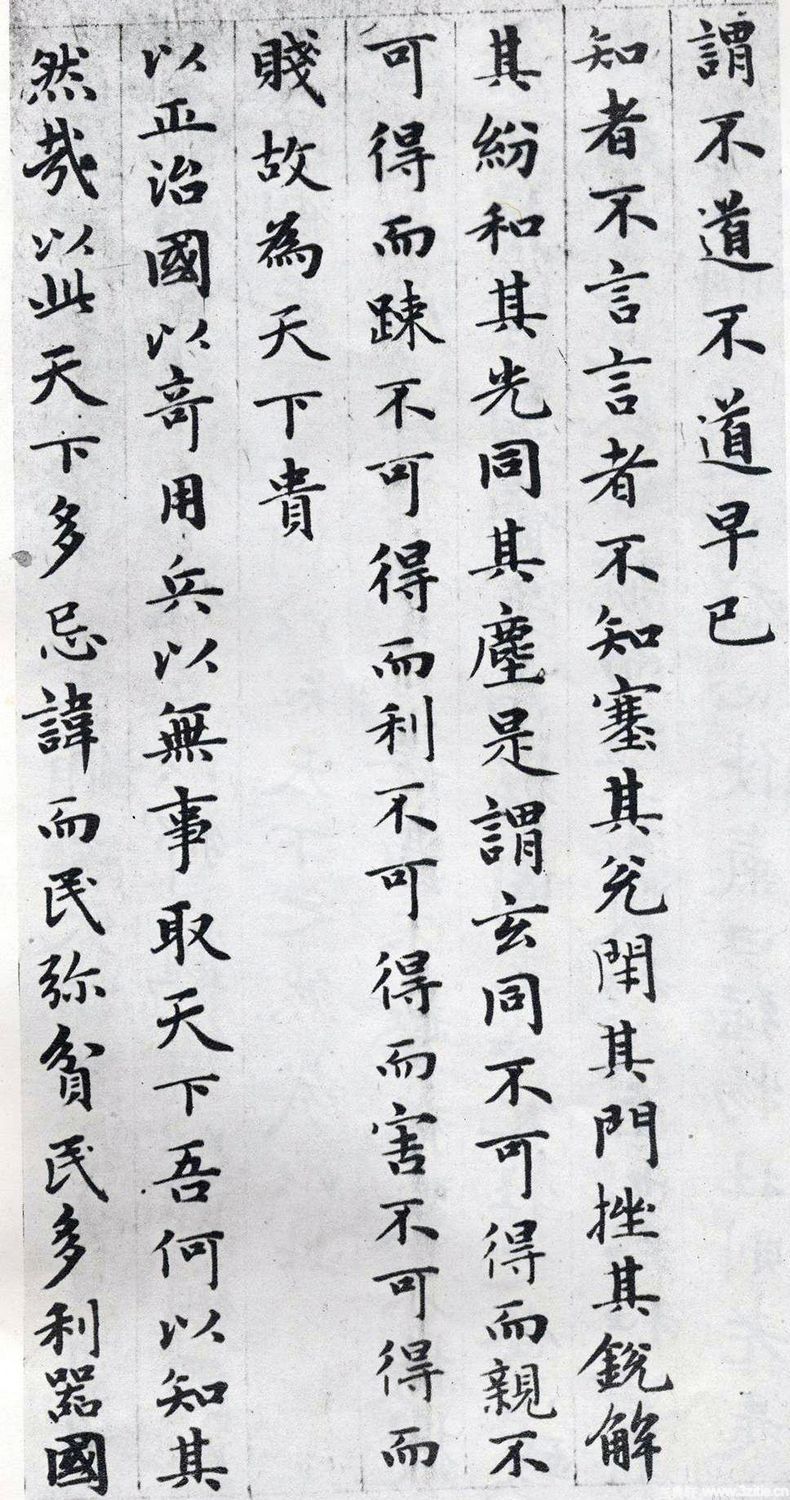 謂不道不道早已
知者不言言者不知塞其兊閇其門挫其銳解
其紛和其光同其塵是謂玄同不可得而親不
可得而踈不可得而利不可得而害不可得而
賤故為天下貴
以正治國以竒用兵以無事取天下吾何以知其
然哉以此天下多忌諱而民弥貧民多利器國
www.3zitie.cn